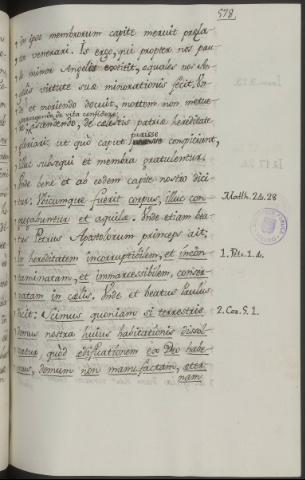 578.
in ipso membrorum capite meruit prola-
te venerari. Is ergo, qui propter nos pau-
lo minor Angelis extitit, equales nos An-
gelis virtute suæ minorationis fecit. Un-
de et moriendo docuit, mortem non metue-
re, ascendendo, de cælestis patriæ hereditate
gloriari: ut quò caput præisse conspicerent,
illuc subsequi et membra gratulentur.
Unde bene et ab eodem capite nostro dici-
tur: Ubicumque fuerit corpus, illuc con-
gregabuntur et aquilæ. Unde etiam bea-
tus Petrus Apostolorum princeps ait:
In hereditatem incorruptibilem, et incon-
taminatam, et immarcessibilem, conser-
vatam in cælis. Unde et beatus Paulus
dicit: Scimus quoniam si terrestris
domus nostra huius habitationis dissol-
vatur quòd ædificationem ex Deo habe-
mus, domum non manufactam, æter-
nam
Matth. 24. 28
1. Petr. 1. 4.
2. Cor. 5. 1.